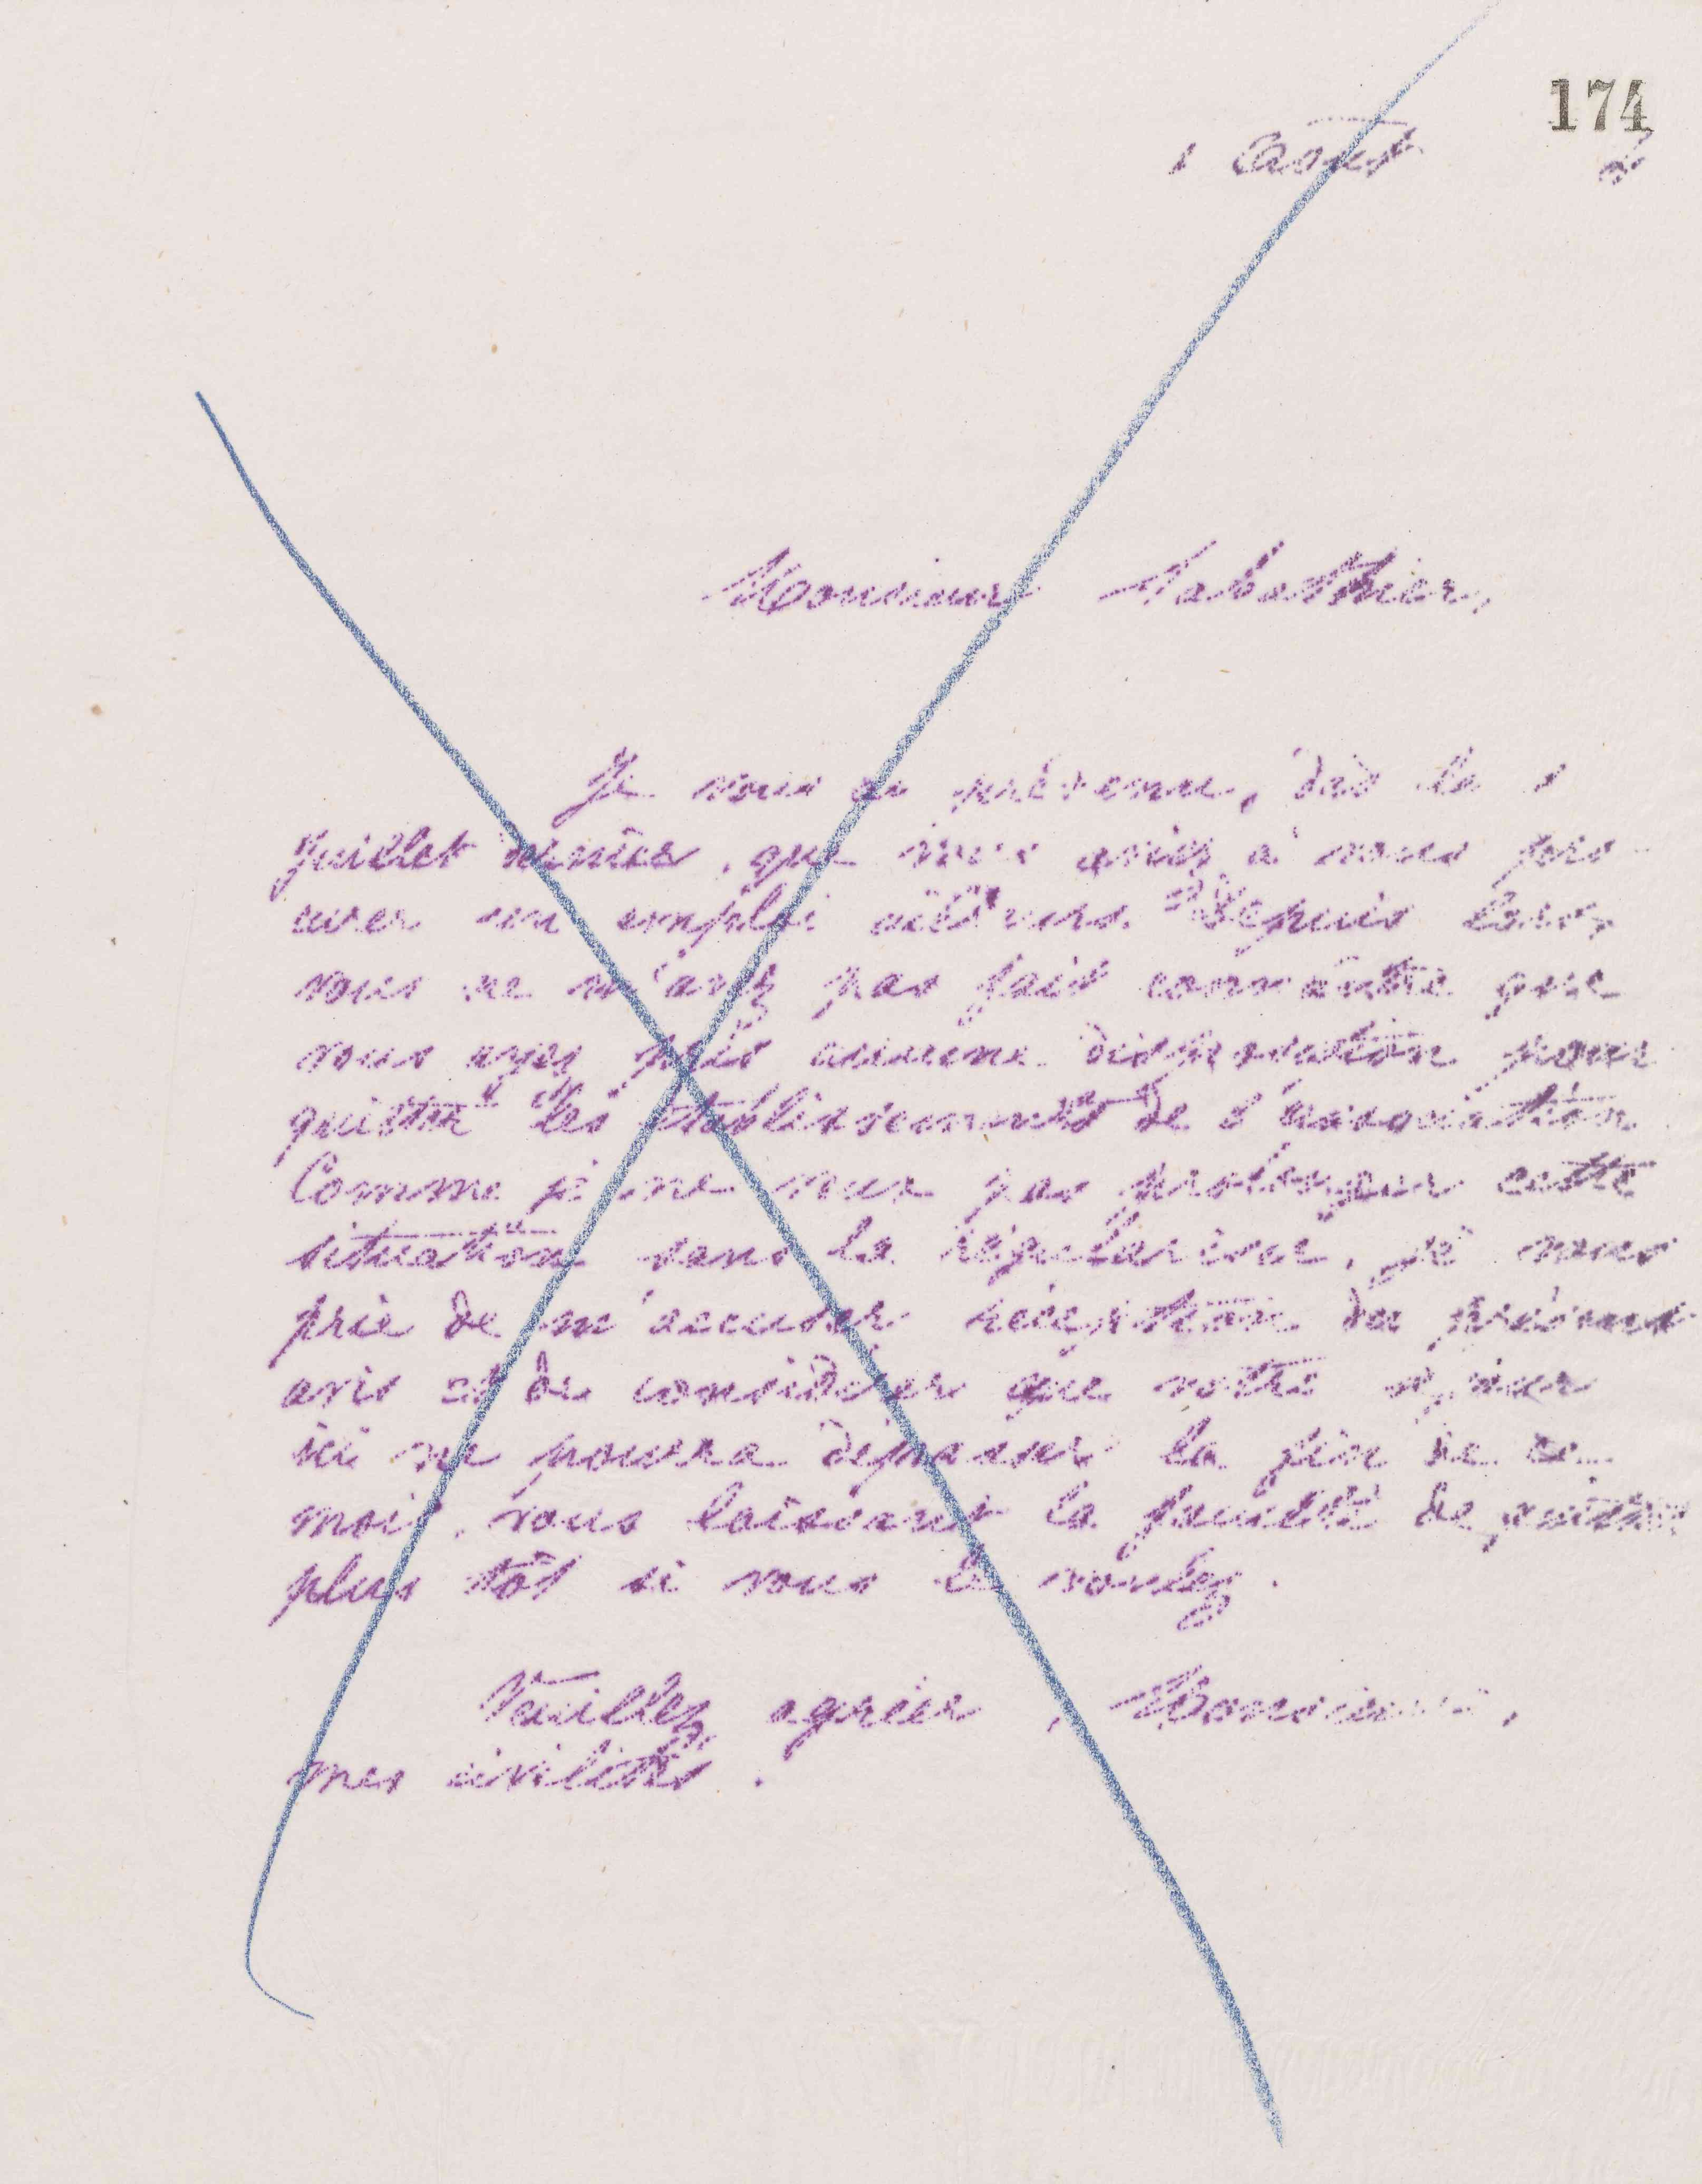 174
1 Août
Monsieur Sabathier,
Je vous ai prévenu, dès le 1
Juillet dernier, que vous aviez à vous pro-
curer un emploi ailleurs. Depuis lors,
vous ne m'avez pas fait connaître que
vous ayez pris aucune disposition pour
quitter les établissements de l'association.
Comme je ne veux pas prolonger cette
situation sans la régulariser, je vous
prie de m'accuser réception du présent
avis et de considérer que votre séjour
ici ne pourra dépasser la fin de ce
mois, vous laissant la faculté de partir
plus tôt si vous le voulez.
Veuillez agréer, Monsieur,
mes civilités.